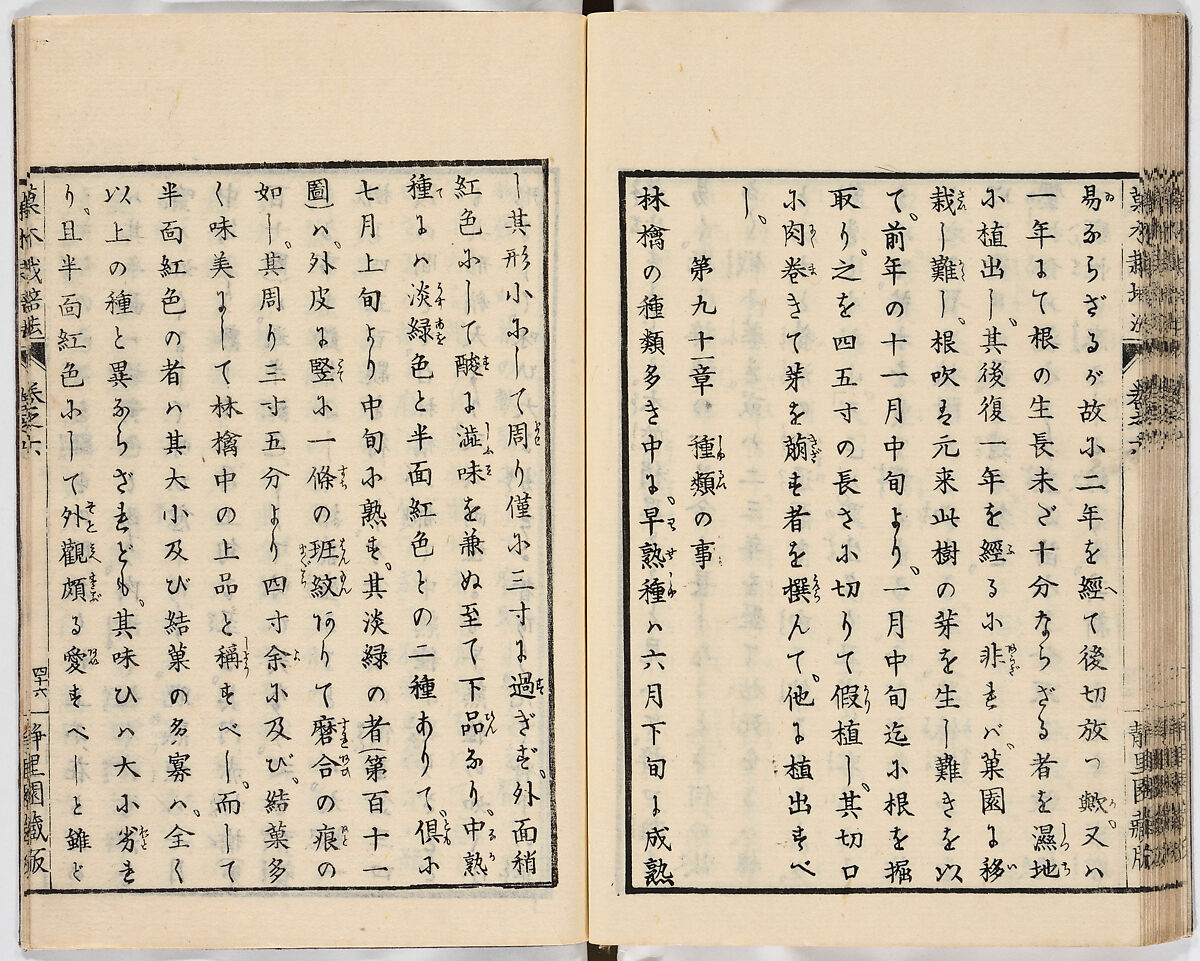 菓木栽培法 巻之六 静里園蔵版
易ならざるが故に二年を經て後切放つ歟又ハ
一年にて根の生長未ざ十分ならざる者を濕地
に植出し其後復一年を經るに非ずバ菓園に移
栽し難し根吹は元来此樹の芽を生し難きを以
て前年の十一月中旬より一月中旬迄に根を掘
取り之を四五寸の長さに切りて假植し其切口
に肉巻きて芽を萠す者を撰んて他に植出すべ
し
第九十一章 種類の事
林檎の種類多き中に早熟種ハ六月下旬に成熟
し其形小にして周り僅に三寸に過ぎず外面稍
紅色にして酸に澁味を兼ぬ至て下品なり中熟
種にハ淡緑色と半面紅色との二種ありて倶に
七月上旬より中旬に熟す其淡緑の者(第百十一
圖)ハ外皮に竪に一條の斑紋ありて磨合の痕の
如し其周り三寸五分より四寸余に及び結菓多
く味美にして林檎中の上品と稱すべし而して
半面紅色の者ハ其大小及び結菓の多寡ハ全く
以上の種と異ならざれども其味ひハ大に劣れ
り且半面紅色にして外觀頗る愛すべと雖ど
菓木栽培法 巻之六 四十六 静里園蔵版